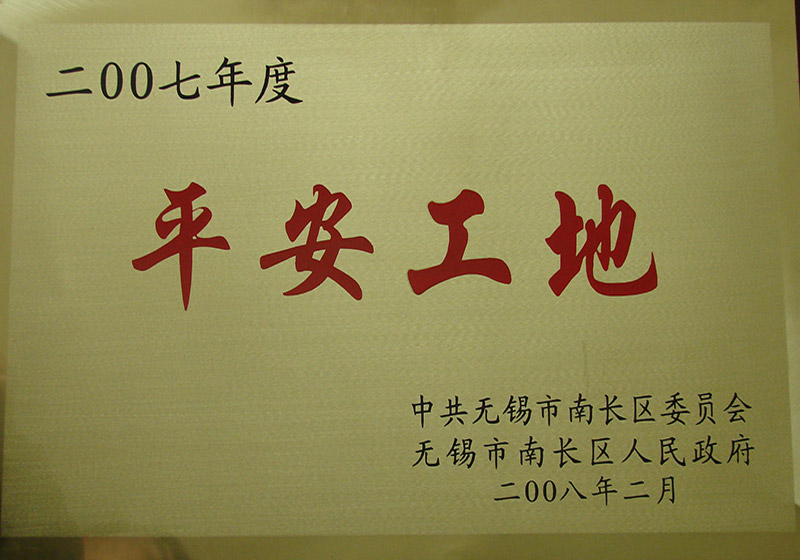 二00七年度
平安工地
中共无锡市南长区委员会
无锡市南长区人民政府
二00八年二月